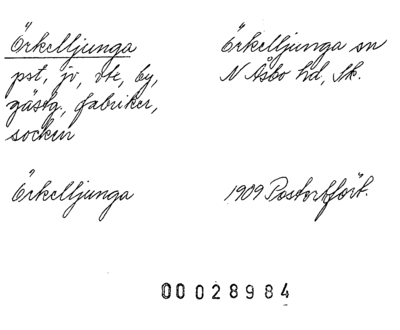 Örkelljunga
pst, jv, vte, by,
gästg., fabriker,
socken
Örkelljunga sn
N Åsbo hd, Sk.
Örkelljunga
1909 Postortfört.
00028984